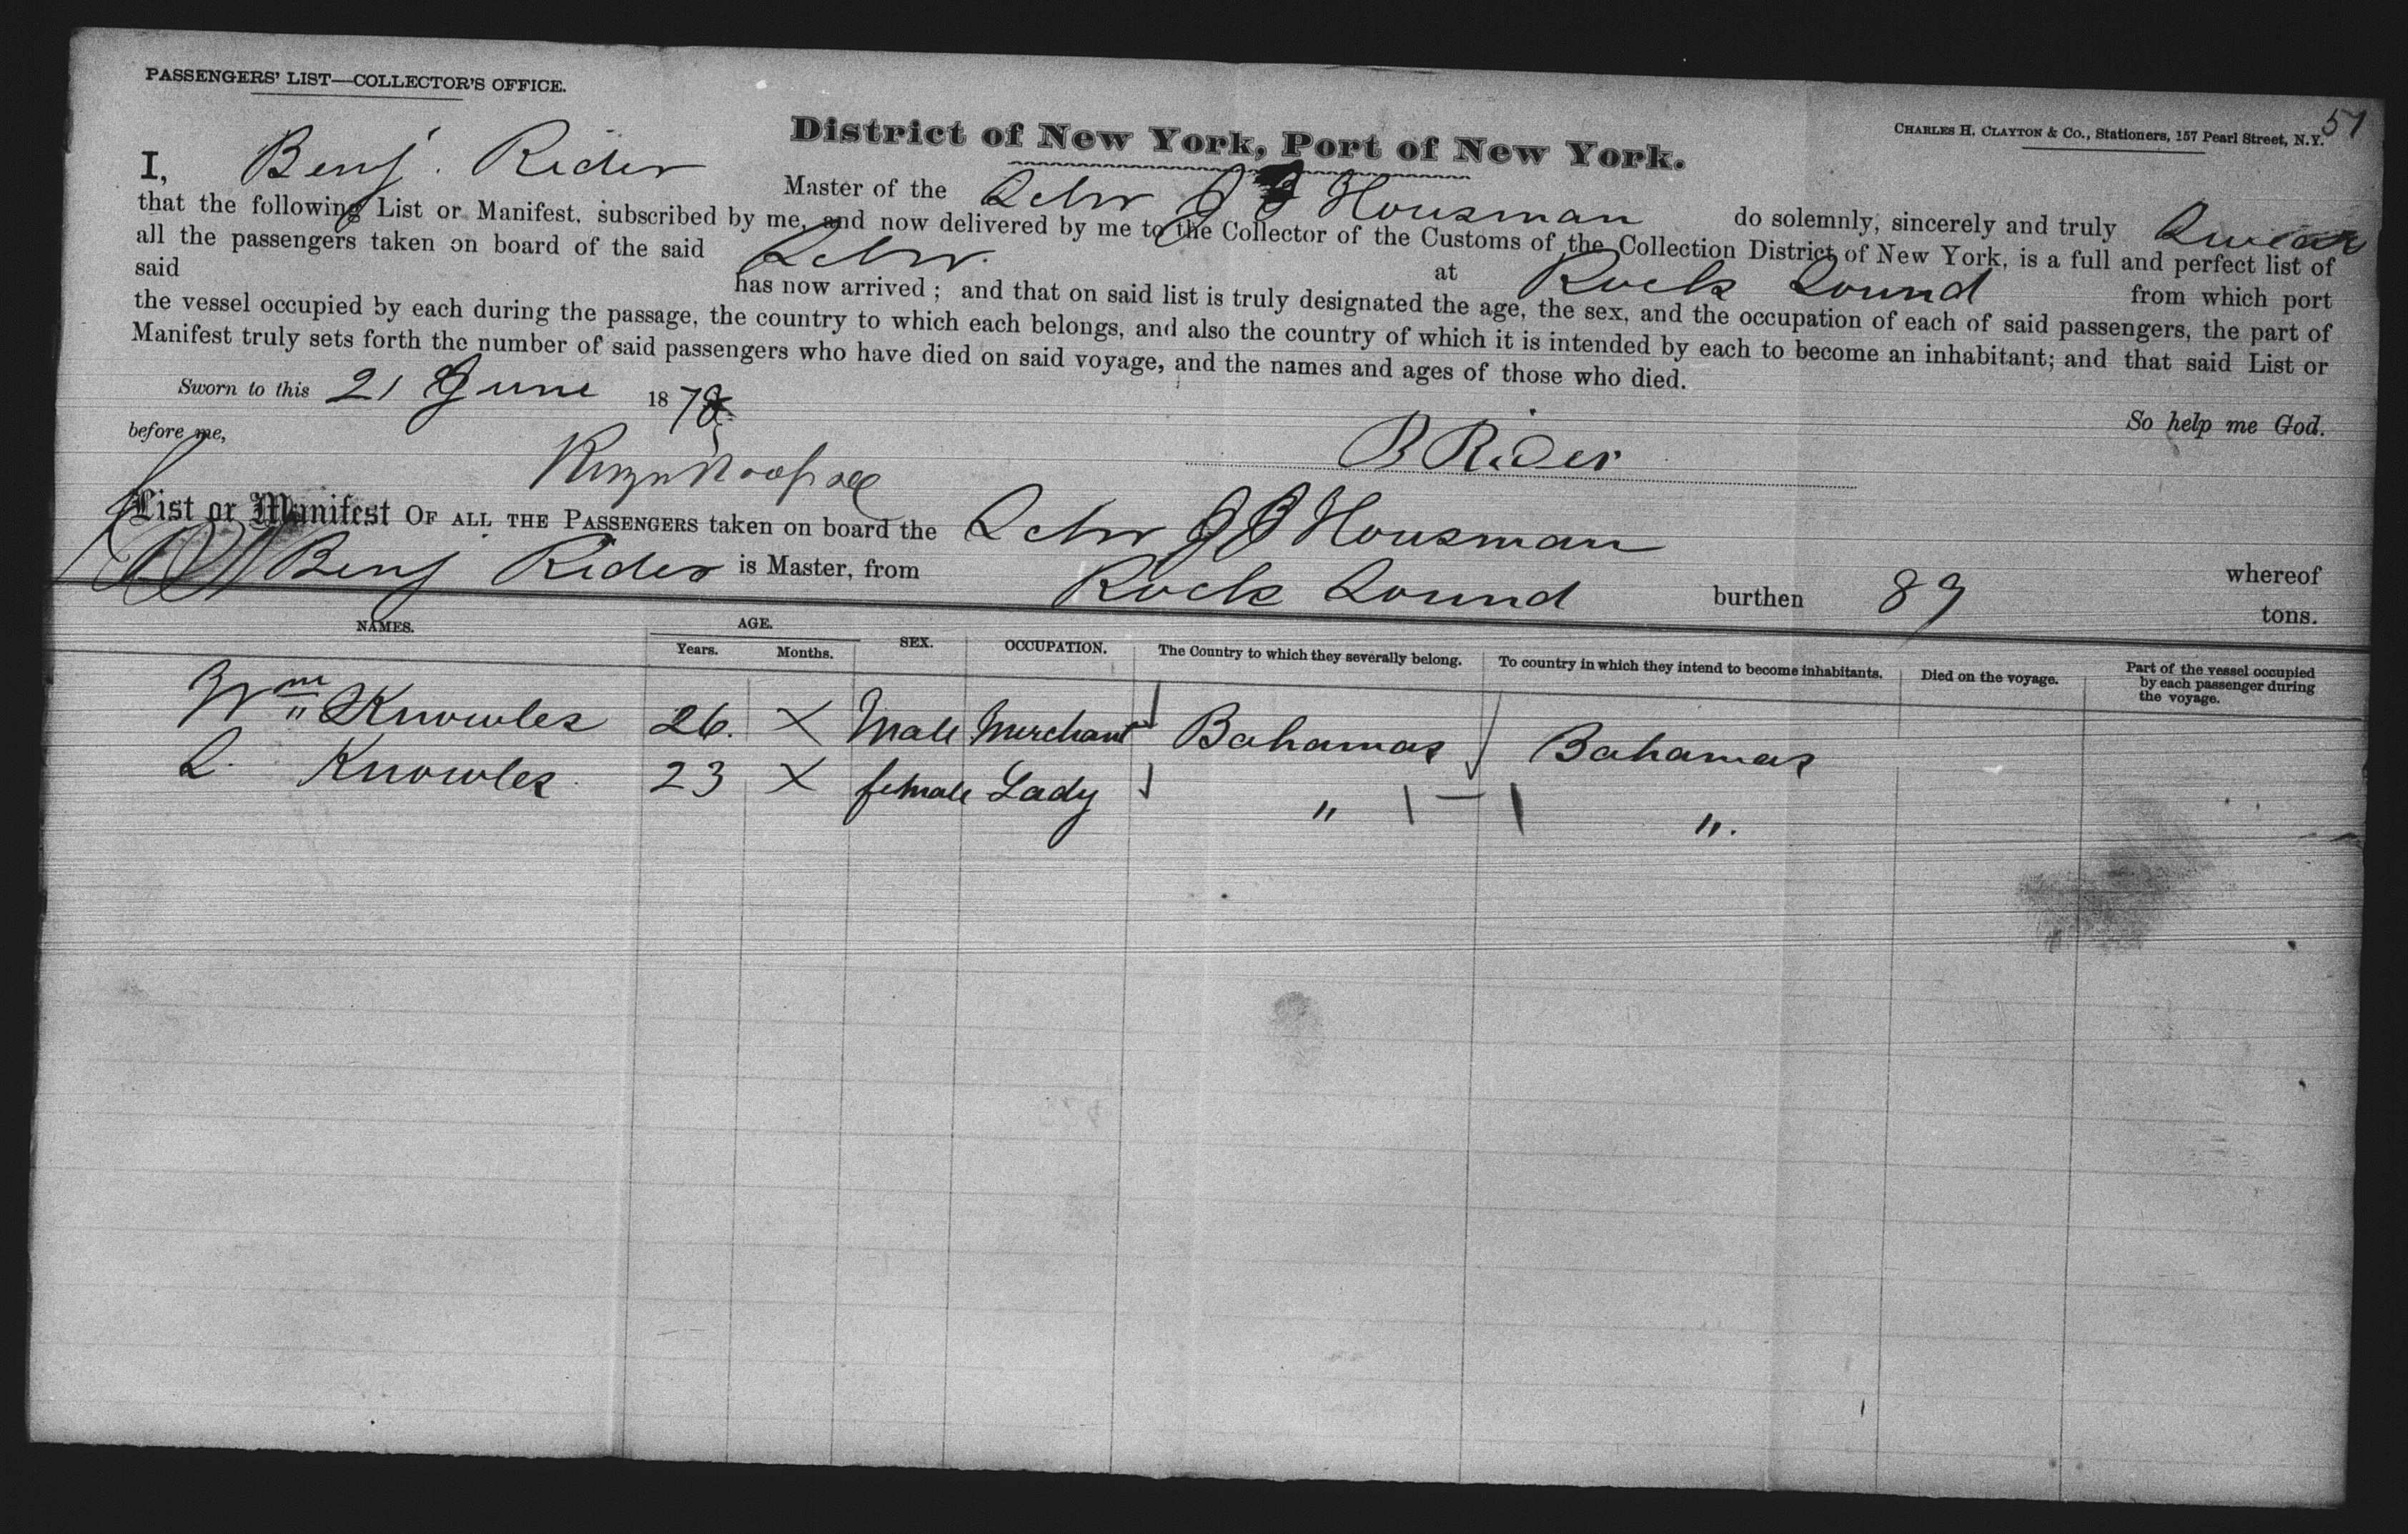 PASSENGERS' LIST—COLLECTOR'S OFFICE.
CHARLES H. CLAYTON & CO., Stationers, 157 Pearl Street, N.Y.
51
District of New York, Port of New York.
I, Benj. Rider Master of the Schr J B Housman do solemnly, sincerely and truly Swear
that the following List or Manifest, subscribed by me, and now delivered by me to the Collector of the Customs of the Collection District of New York, is a full and perfect list of
all the passengers taken on board of the said Schr. at Rock Sound from which port
said has now arrived; and that on said list is truly designated the age, the sex, and the occupation of each of said passengers, the part of
the vessel occupied by each during the passage, the country to which each belongs, and also the country of which it is intended by each to become an inhabitant; and that said List or
Manifest truly sets forth the number of said passengers who have died on said voyage, and the names and ages of those who died.
Sworn to this 21 June 187
So help me God.
before me,
B Rider
List or Manifest OF ALL THE PASSENGERS taken on board the Schr J B Housman whereof
Benj Rider is Master, from Rock Sound burthen 89 tons.
NAMES. AGE. SEX. OCCUPATION. The Country to which they severally belong. To country in which they intend to become inhabitants. Died on the voyage. Part of the vessel occupied by each passenger during the voyage.
Years. Months.
Wm Knowles 26. X Male Merchant Bahamas Bahamas
S. Knowles 23 X female Lady " 1 — 1 ".